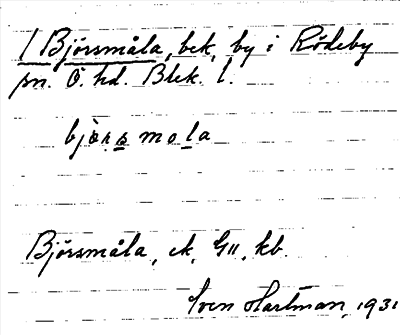 1 Björsmåla, bek, by i Rödeby
sn. Ö. hd. Blek. l.
björs mola
Björsmåla, ek, G11, kb.
Sven Hartman, 1931